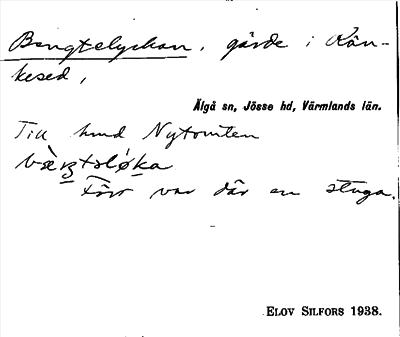 Bengtelyckan, gärde i Rän-
kesed,
Älgå sn, Jösse hd, Värmlands län.
Till hmd Nytomten
Förr var där en stuga.
ELOV SILFORS 1938.